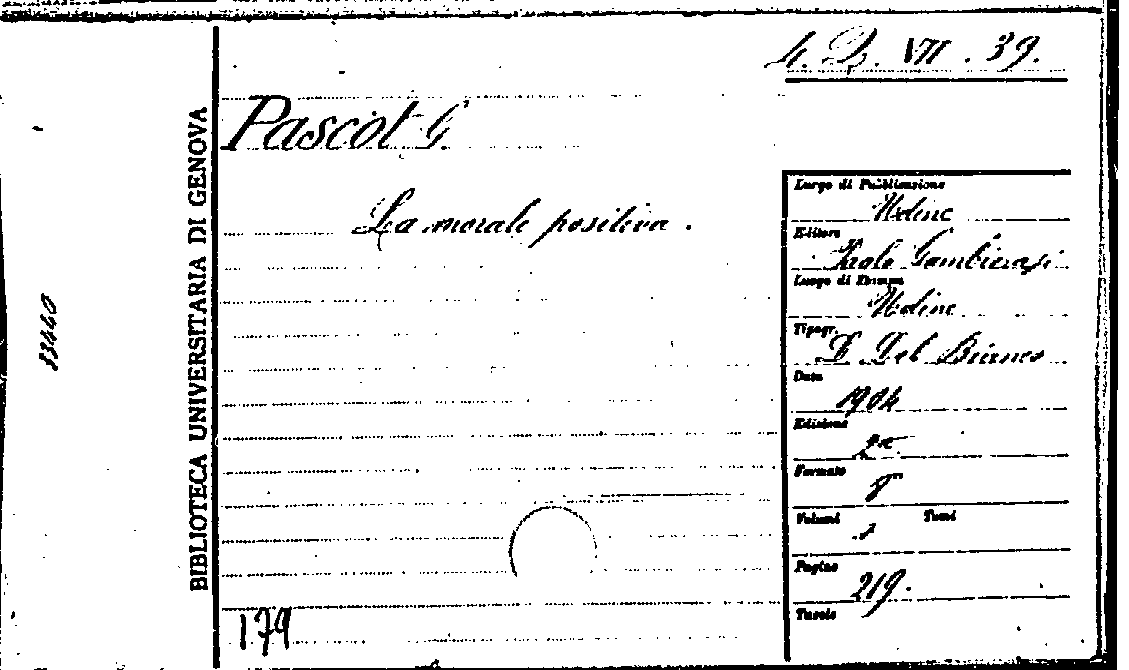 4. D. VII. 39.
Pascot G.
La morale positiva.
BIBLIOTECA UNIVERSITARIA DI GENOVA
33440
Luogo di Pubblicazione
Udine
Editore
Paolo Gambierasi
Luogo di Stampa
Udine
Tipogr.
D. Del Bianco
Data
1904
Edizione
2ª
Formato
8°
Volumi Tomi
1
Pagine
219.
Tavole
179